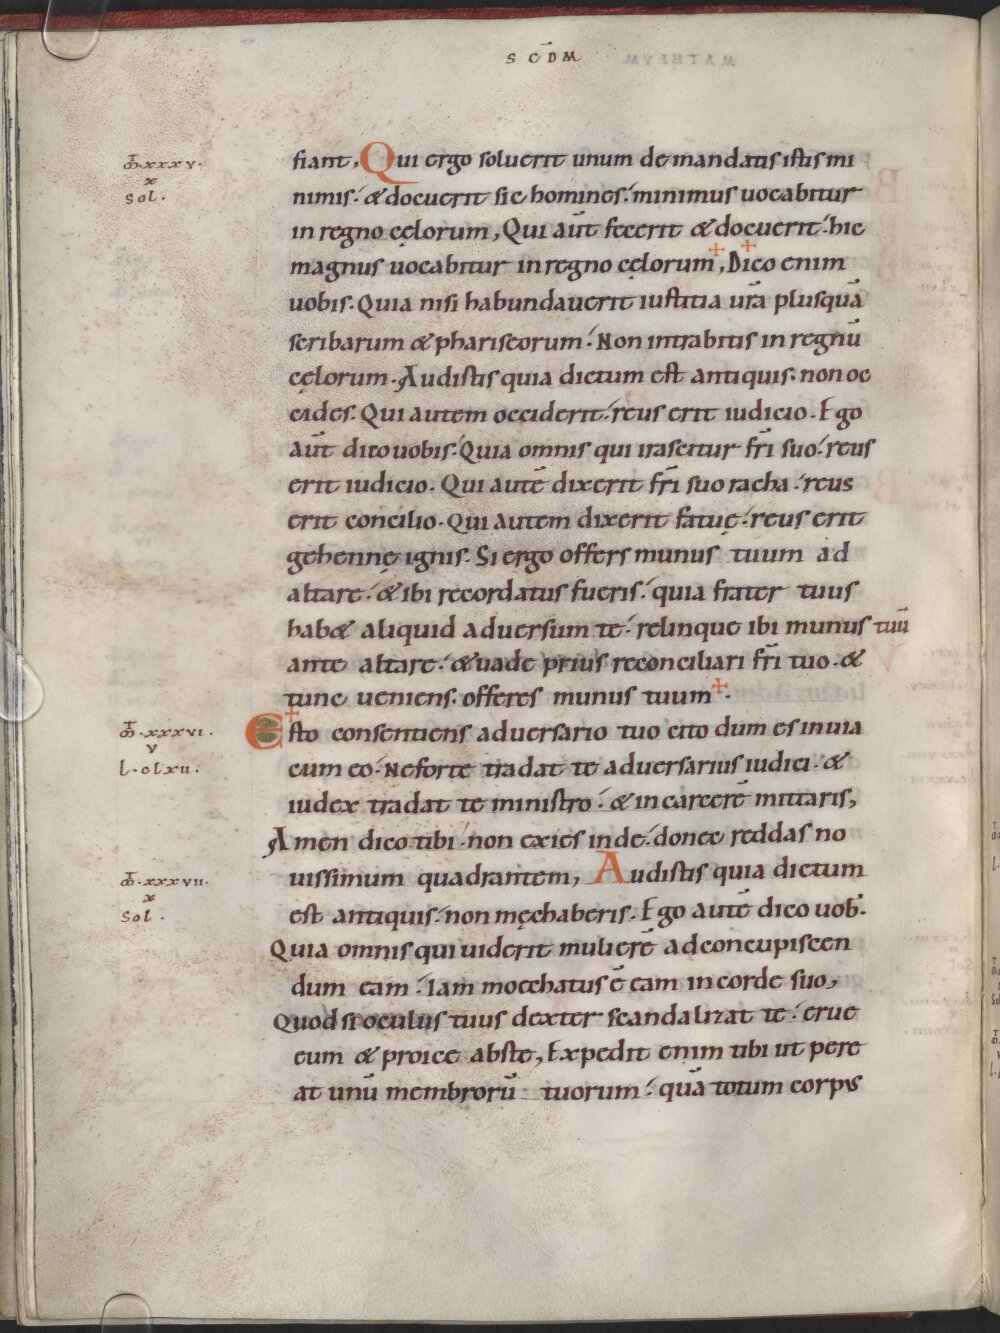 SCDM̅
m̅·xxxv·
x
sol·
fiant, Qui ergo soluerit unum de mandatis istis mi
nimis· & docuerit sic homines· minimus uocabitur
in regno cęlorum, Qui aut̅ fecerit & docuerit· hic
magnus uocabitur in regno cęlorum, Dico enim
uobis· Quia nisi habundauerit iustitia ur̅a plusqua̅
scribarum & phariseorum· Non intrabitis in regnu̅
cęlorum· Audistis quia dictum est antiquis· non oc
cides· Qui autem occiderit· reus erit iudicio· Ego
aut̅ dico uobis· Quia omnis qui irascitur fr̅i suo· reus
erit iudicio· Qui aute̅ dixerit fr̅i suo racha· reus
erit concilio· Qui autem dixerit fatuę· reus erit
gehennę ignis· Si ergo offers munus tuum ad
altare· & ibi recordatus fueris· quia frater tuus
hab& aliquid aduersum te· relinque ibi munus tuu̅
ante altare· & uade prius reconciliari fr̅i tuo· &
tunc ueniens offeres munus tuum·
m̅·xxxvi·
v
l·clxii·
Esto consentiens aduersario tuo cito dum es in uia
cum eo· Ne forte tradat te aduersarius iudici· &
iudex tradat te ministro· & in carcere̅ mittaris,
Amen dico tibi· non exies inde· donec reddas no
uissimum quadrantem, Audistis quia dictum
m̅·xxxvii·
x
sol·
est antiquis· non męchaberis· Ego aute̅ dico uob̅·
Quia omnis qui uiderit muliere̅ ad concupiscen
dum eam· Iam moechatus e̅ eam in corde suo,
Quod si oculus tuus dexter scandalizat te· erue
eum & proice abs te, Expedit enim tibi ut pere
at unu̅ membroru̅ tuorum· qua̅ totum corpus